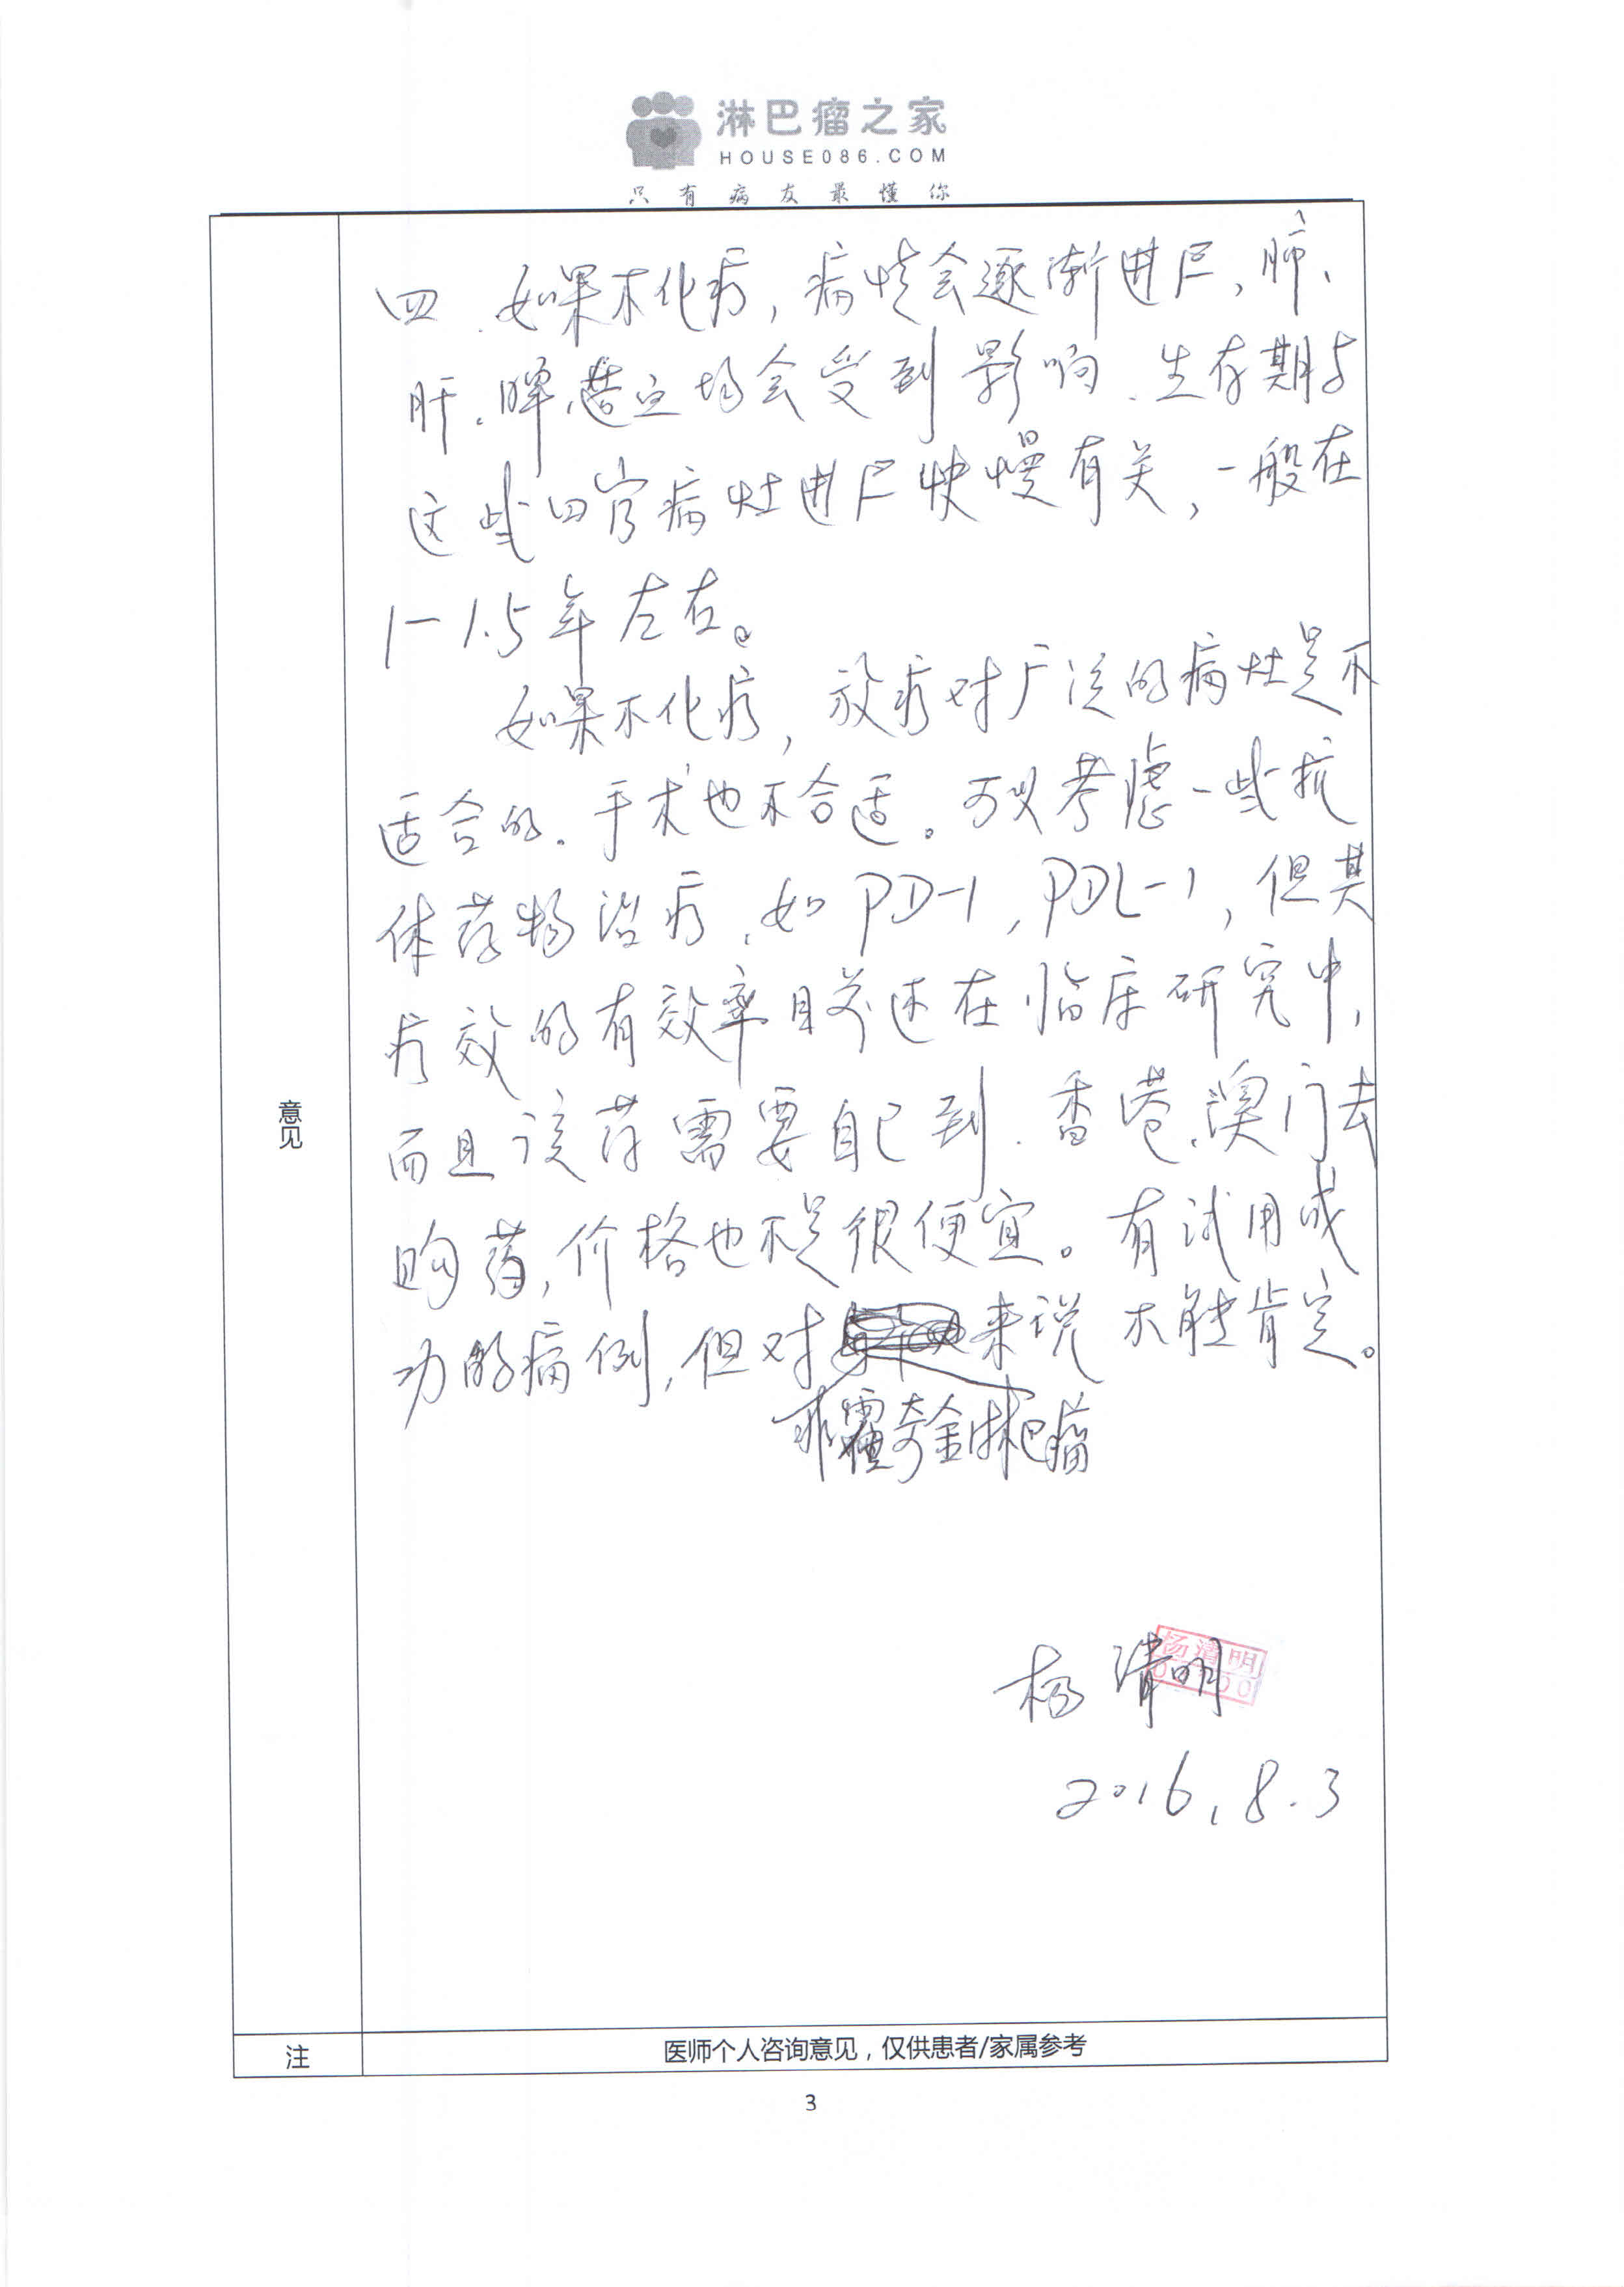 淋巴瘤之家
HOUSE086.COM
只有病友最懂你
四、如果不化疗,病情会逐渐进展,肺、
肝、脾、等均会受到影响、生存期与
这些器官病灶进展快慢有关,一般在
1-1.5年左右。
如果不化疗,放疗对广泛的病灶是不
适合的.手术也不合适。可以考虑一些抗
体药物治疗,如PD-1,PDL-1,但其
疗效的有效率目前还在临床研究中,
而且该药需要自己到香港、澳门去
购药,价格也不是很便宜。有试用成
功的病例,但对来说不能肯定。
非霍奇金淋巴瘤
意见
杨清明
杨清明
2016.8.3
注
医师个人咨询意见,仅供患者/家属参考
3